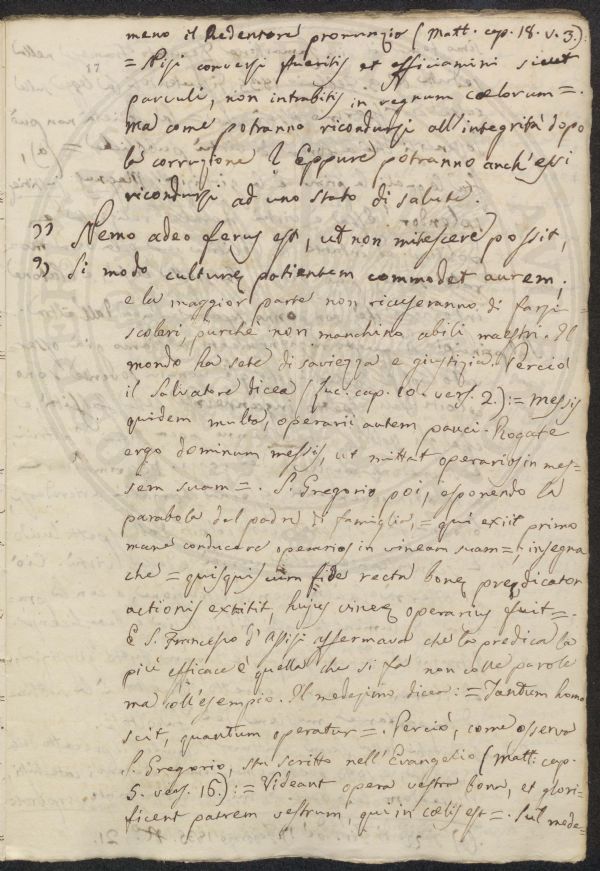 meno il Redentore pronunzio (Matt. cap. 18. v. 3.):
= Nisi conversi fueritis et efficiamini sicut
parvuli, non intrabitis in regnum cœlorum =.
Ma come potranno ricondursi all'integrità dopo
la corruzione? Eppure potranno anch'essi
ricondursi ad uno stato di salute.
"Nemo adeo ferus est, ut non mitescere possit,
"Si modo culturę patientem commodet aurem;
e la maggior parte non ricuseranno di farsi
scolari, purchè non manchino abili maestri. Il
mondo ha sete di saviezza e giustizia. Perciò
il Salvatore dicea (Luc. cap. 10. vers. 2.): = Messis
quidem multa, operarii autem pauci. Rogate
ergo dominum messis, ut mittat operarios in mes-
sem suam =. S. Gregorio poi, esponendo la
parabola del padre di famiglia, = qui exiit primo
mane conducere operarios in vineam suam =, insegna
che = quisquis cum fide recta bonę prędicator
actionis extitit, hujus vineę operarius fuit =.
E S. Francesco d'Assisi affermava che la predica la
più efficace è quella che si fa non colle parole
ma coll'esempio. Il medesimo dicea: = Tantum homo
scit, quantum operatur =. Perciò, come osserva
S. Gregorio, sta scritto nell'Evangelio (Matt. cap.
5. vers. 16.): = Videant opera vestra bona, et glori-
ficent patrem vestrum, qui in cœlis est =. Sul mede-